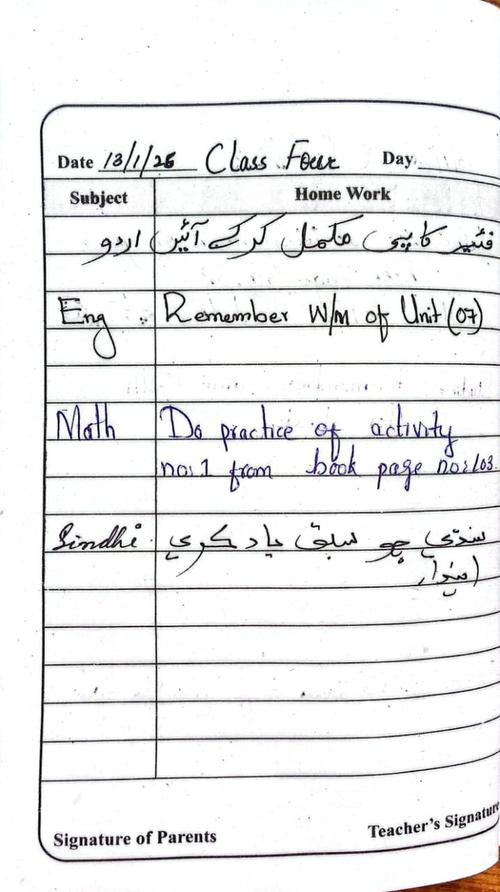 Date 13/1/26 Class Four Day
Subject Home Work
اردو فئیر کاپی مکمل کرکے آئیں
Eng Remember W/M of Unit (07)
Math Do practice of activity
no: 1 from book page no: 103.
Sindhi سنڌي جو سبق ياد ڪري
اينداؤ
Signature of Parents Teacher's Signature